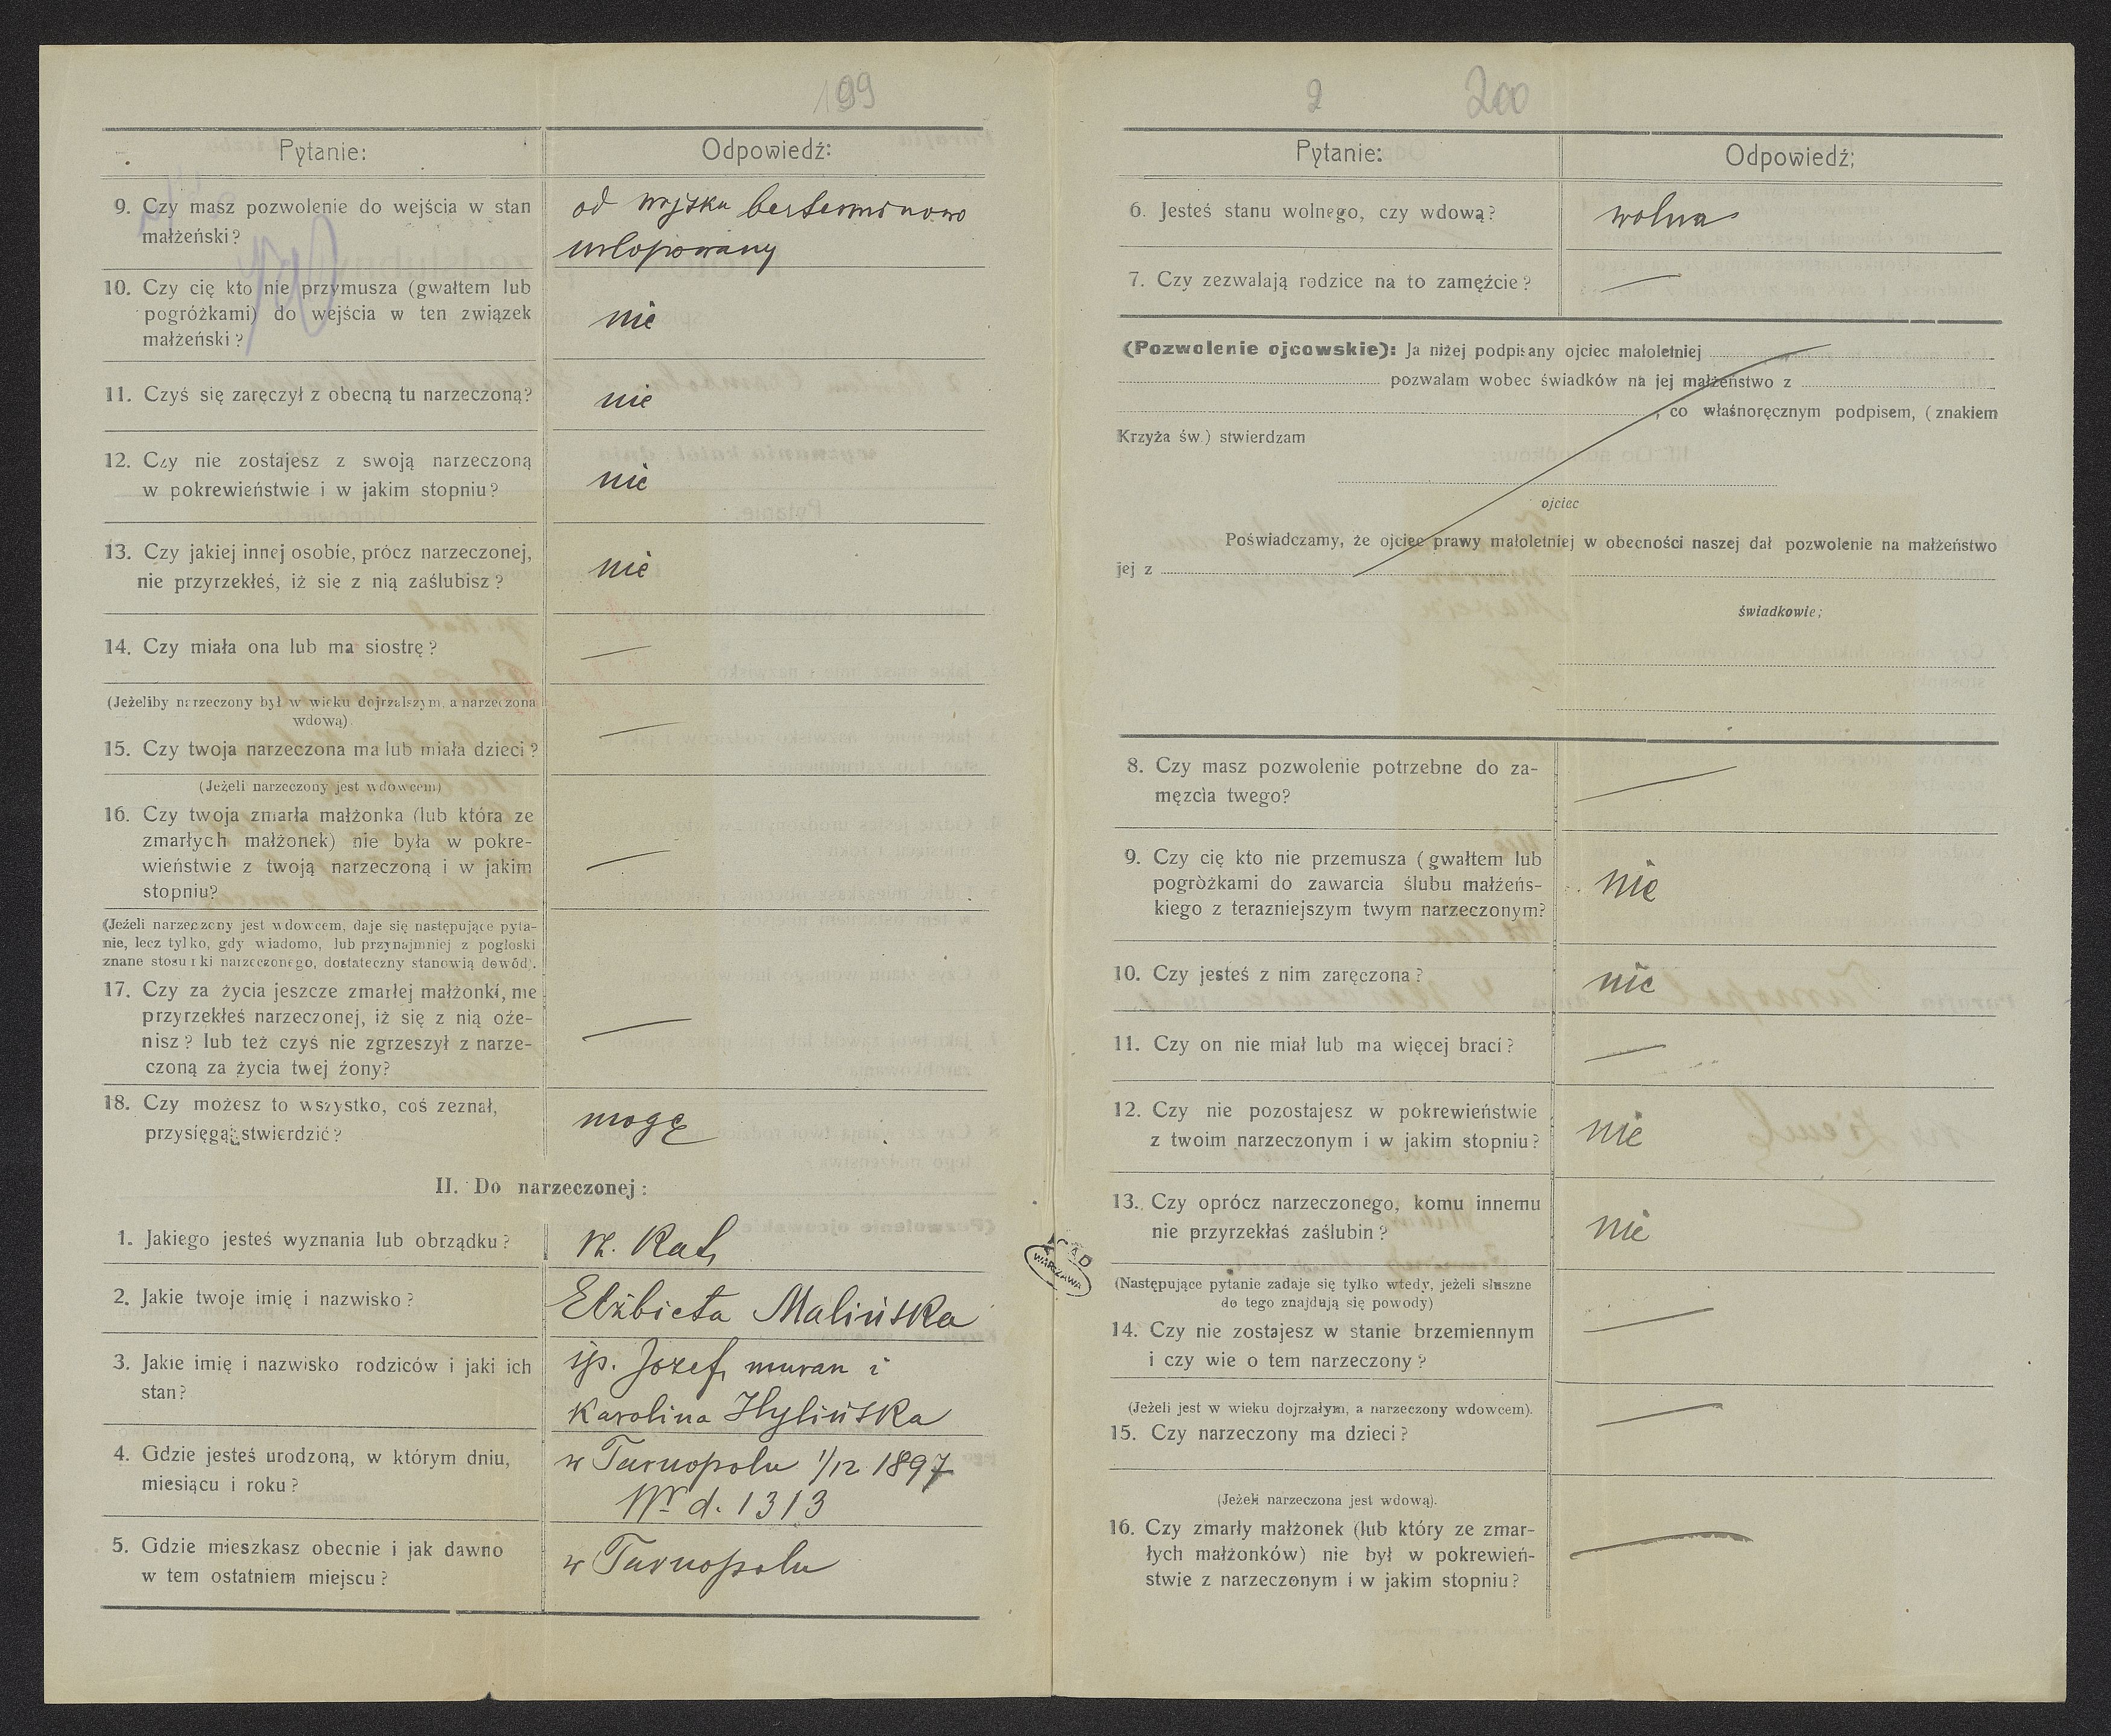 199
Pytanie:
Odpowiedź:
9. Czy masz pozwolenie do wejścia w stan
małżeński?
od wojska bezterminowo
urlopowany
10. Czy cię kto nie przymusza (gwałtem lub
pogróżkami) do wejścia w ten związek
małżeński?
nie
11. Czyś się zaręczył z obecną tu narzeczoną?
nie
12. Czy nie zostajesz z swoją narzeczoną
w pokrewieństwie i w jakim stopniu?
nie
13. Czy jakiej innej osobie, prócz narzeczonej,
nie przyrzekłeś, iż się z nią zaślubisz?
nie
14. Czy miała ona lub ma siostrę?
—
(Jeżeliby narzeczony był w wieku dojrzalszym, a narzeczona
wdową).
15. Czy twoja narzeczona ma lub miała dzieci?
—
(Jeżeli narzeczony jest wdowcem)
16. Czy twoja zmarła małżonka (lub która ze
zmarłych małżonek) nie była w pokre-
wieństwie z twoją narzeczoną i w jakim
stopniu?
—
(Jeżeli narzeczony jest wdowcem, daje się następujące pyta-
nie, lecz tylko, gdy wiadomo, lub przynajmniej z pogłoski
znane stosunki narzeczonego, dostateczny stanowią dowód).
17. Czy za życia jeszcze zmarłej małżonki, nie
przyrzekłeś narzeczonej, iż się z nią oże-
nisz? lub też czyś nie zgrzeszył z narze-
czoną za życia twej żony?
—
18. Czy możesz to wszystko, coś zeznał,
przysięgą stwierdzić?
mogę
II. Do narzeczonej:
1. Jakiego jesteś wyznania lub obrządku?
rz. Kat.
2. Jakie twoje imię i nazwisko?
Elżbieta Malińska
3. Jakie imię i nazwisko rodziców i jaki ich
stan?
śp. Jozef, muran i
Karolina Hylińska
4. Gdzie jesteś urodzoną, w którym dniu,
miesiącu i roku?
w Tarnopolu 1/12 1897
Nr d. 1313
5. Gdzie mieszkasz obecnie i jak dawno
w tem ostatniem miejscu?
w Tarnopolu
2
200
Pytanie:
Odpowiedź;
6. Jesteś stanu wolnego, czy wdową?
wolna
7. Czy zezwalają rodzice na to zamęźcie?
—
(Pozwolenie ojcowskie): Ja niżej podpisany ojciec małoletniej
pozwalam wobec świadków na jej małżeństwo z
, co właśnoręcznym podpisem, (znakiem
Krzyża św.) stwierdzam
ojciec
Poświadczamy, że ojciec prawy małoletniej w obecności naszej dał pozwolenie na małżeństwo
jej z
świadkowie;
8. Czy masz pozwolenie potrzebne do za-
męzcia twego?
—
9. Czy cię kto nie przemusza (gwałtem lub
pogròżkami do zawarcia ślubu małżeńs-
kiego z terazniejszym twym narzeczonym?
nie
10. Czy jesteś z nim zaręczona?
nie
11. Czy on nie miał lub ma więcej braci?
—
12. Czy nie pozostajesz w pokrewieństwie
z twoim narzeczonym i w jakim stopniu?
nie
13. Czy oprócz narzeczonego, komu innemu
nie przyrzekłaś zaślubin?
nie
(Następujące pytanie zadaje się tylko wtedy, jeżeli słuszne
do tego znajdują się powody)
14. Czy nie zostajesz w stanie brzemiennym
i czy wie o tem narzeczony?
—
(Jeżeli jest w wieku dojrzałym, a narzeczony wdowcem).
15. Czy narzeczony ma dzieci?
—
(Jeżeli narzeczona jest wdową).
16. Czy zmarły małżonek (lub który ze zmar-
łych małżonków) nie był w pokrewień-
stwie z narzeczonym i w jakim stopniu?
—
AGAD
WARSZAWA